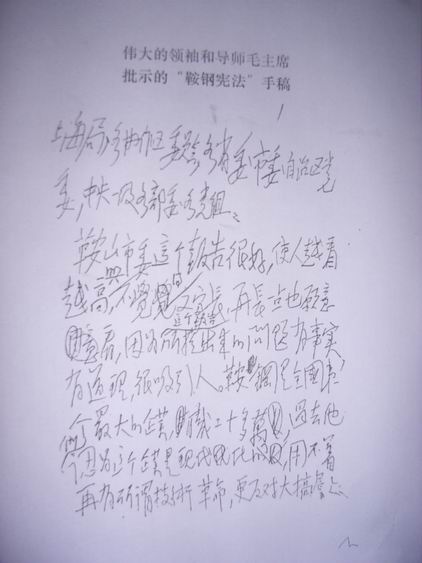 伟大的领袖和导师毛主席
批示的“鞍钢宪法”手稿
上海局,各协作区委员会,各省委,市委,自治区党
委,中央一级各部委,各党组:
鞍山市委这个报告很好,使人越看
越高兴,不觉得文字长,再长一点也愿意
看,因为这个报告所提出来的问题有事实,
有道理,很吸引人。鞍钢是全国第一
个最大的企业,职工十多万,过去他
们认为这个企业是现代化的了,用不着
再有所谓技术革命,更反对大搞群众